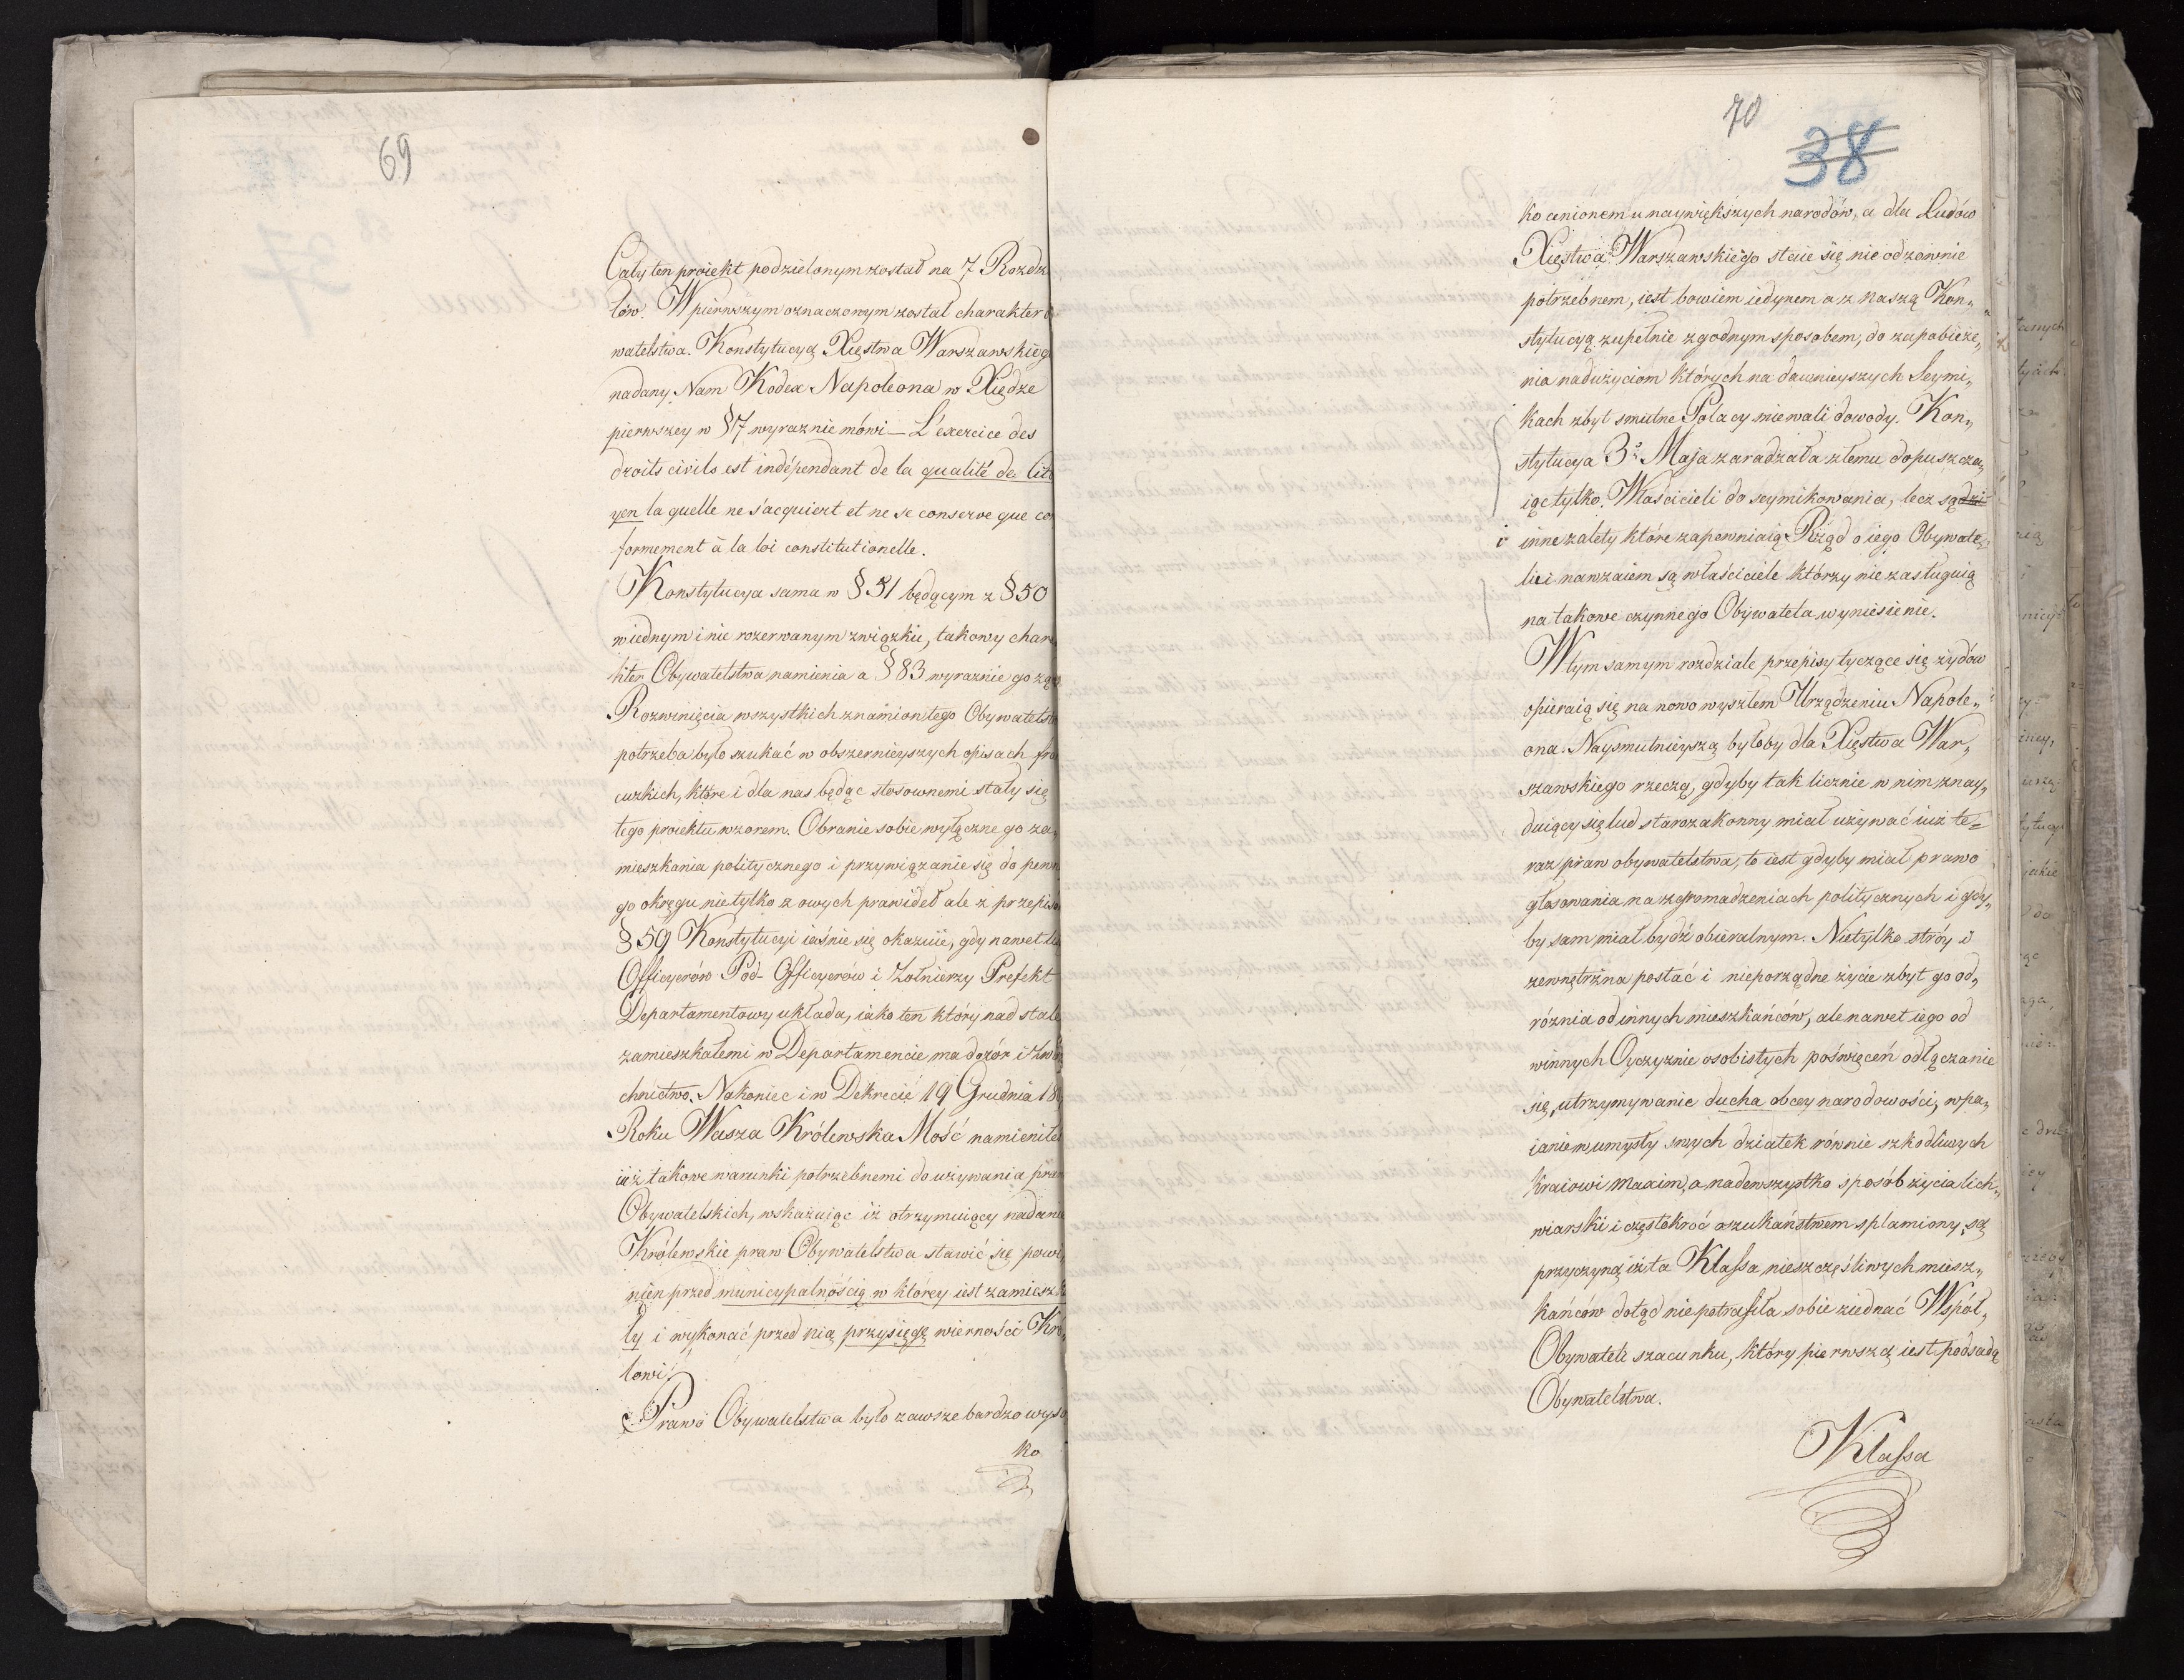 69
Cały ten proiekt podzielonym został na 7 Rozdz
łów. W pierwszym oznaczonym został charakter O
watelstwa. Konstytucyą Xięstwa Warszawskieg
nadany Nam Kodex Napoleona w Xiędze
pierwszey w §7 wyraznie mówi – L'exercice des
droits civils est indépendant de la qualité de Cito
yen la quelle ne s'acquiert et ne se conserve que co
formement à la loi constitutionelle.
Konstytucya sama w §51 będącym z §50
w iednym i nie rozerwanym związku, takowy char
kter Obywatelstwa namienia a §83 wyraznie go
Rozwinięcia wszystkich znamion tego Obywatelst
potrzeba było szukać w obszernieyszych opisach fra
cuzkich, które i dla nas będąc stosownemi stały się
tego proiektu wzorem. Obranie sobie wyłącznego za
mieszkania politycznego i przywiązanie się do pewn
go okręgu nie tylko z owych prawideł ale z przepis
§59 Konstytucyi iaśnie się okazuie, gdy nawet
Officyerów Pod-Officyerow i Zołnierzy Prefekt
Departamentowy układa, iako ten który nad stale
zamieszkałemi w Departamencie ma dozór i zwie
chnictwo. Nakoniec i w Dekrecie 19 Grudnia 18
Roku Wasza Królewska Mość namienił
iuż takowe warunki potrzebnemi do używania praw
Obywatelskich, wskazuiąc iż otrzymuiący nadane
Królewskie praw Obywatelstwa stawić się powi
nien przed municypalnością w którey iest zamieszk
ły i wykonać przed nią przysięgę wierności Kró„
lowi.
Prawo Obywatelstwa było zawsze bardzo wyso
ko
70
38
ko cenionem u naywiększych narodów, a dla Ludów
Xięstwa Warszawskiego staie się nieodzownie
potrzebnem, iest bowiem iedynem a z naszą Kon„
stytucyą zupełnie zgodnym sposobem, do zapobieże„
nia nadużyciom których na dawnieyszych Seymi„
kach zbyt smutne Polacy miewali dowody. Kon„
stytucya 3º Maja zaradzała złemu dopuszcza„
iąc tylko Właścicieli do seymikowania, lecz są
i inne zalety które zapewniaią Rząd o iego Obywate„
lu i nawzaiem są właściciele którzy nie zasługuią
na takowe czynnego Obywatela wyniesienie.
W tym samym rozdziale przepisy tyczące się żydów
opieraią się na nowo wyszłem Urządzeniu Napole„
ona. Naysmutnieyszą byłoby dla Xięstwa War„
szawskiego rzeczą, gdyby tak licznie w nim znay„
duiący się lud starozakonny miał używać iuż te=
raz praw obywatelstwa, to iest gdyby miał prawo
głosowania na zgromadzeniach politycznych i gdy„
by sam miał bydź obieralnym. Nietylko stróy i
zewnętrzna postać i nieporządne życie zbyt go od„
róznia od innych mieszkańców, ale nawet iego od
winnych Oyczyznie osobistych poświęceń odłączanie
się, utrzymywanie ducha obcey narodowości, wpa„
ianie w umysły swych dziatek równie szkodliwych
kraiowi maxim, a nadewszystko sposób życia lich„
wiarski i częstokroć oszukaństwem splamiony, są
przyczyną iż ta Klassa nieszczęśliwych miesz„
kańców dotąd nie potrafiła sobie ziednać Wspól„
Obywateli szacunku, który pierwszą iest podsadą
Obywatelstwa.
Klassa